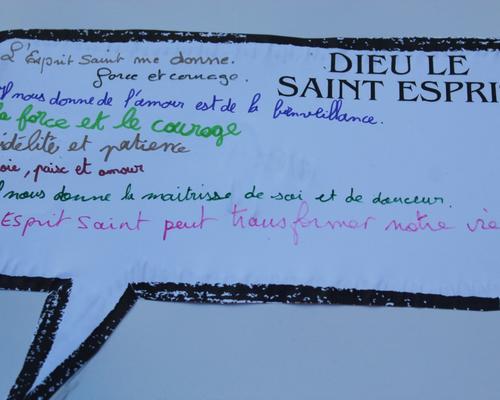 DIEU LE
SAINT ESPRIT
L'Esprit Saint me donne.
force et courage.
Il nous donne de l'amour est de la bienveillance.
la force et le courage
fidélité et patience
Joie, paix et amour
Il nous donne la maitrisse de soi et de douceur.
Esprit Saint peut transformer notre vie